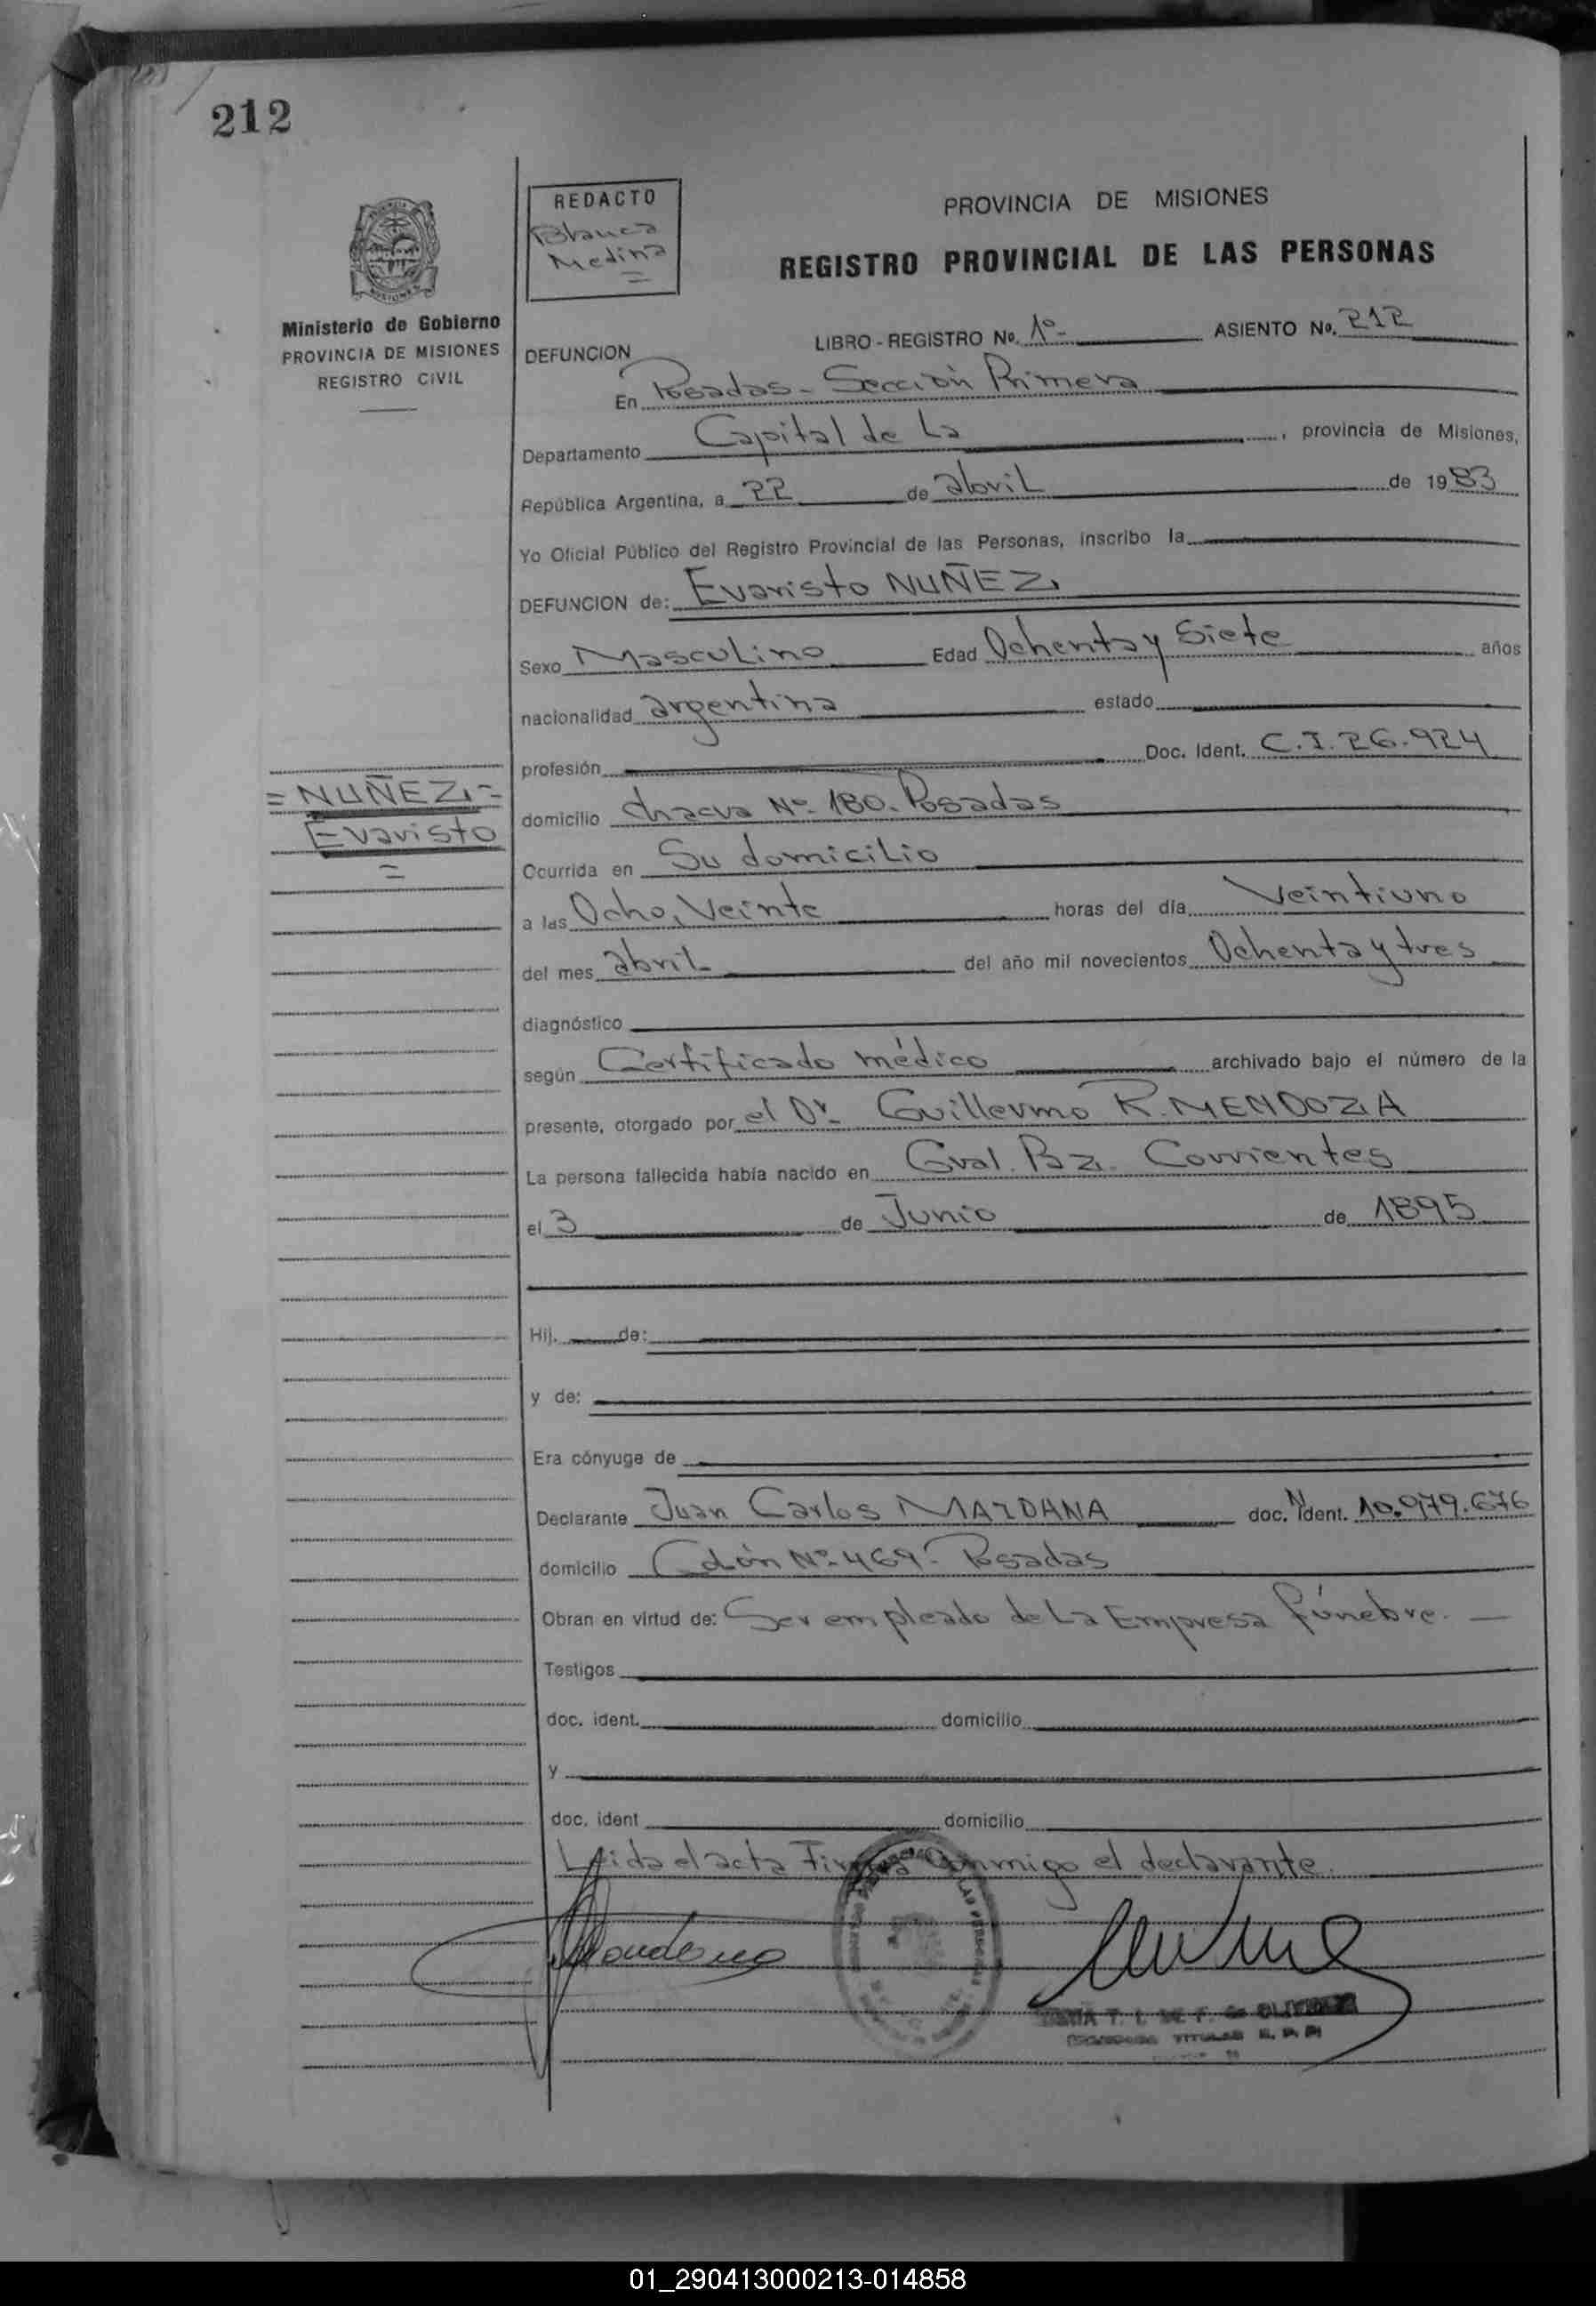 212
REDACTO
Blanca
Medina
PROVINCIA DE MISIONES
REGISTRO PROVINCIAL DE LAS PERSONAS
Ministerio de Gobierno
PROVINCIA DE MISIONES
REGISTRO CIVIL
LIBRO - REGISTRO No. 1º- ASIENTO No. 212
DEFUNCION
En Posadas - Sección Primera
Departamento Capital de La , provincia de Misiones,
República Argentina, a 22 de abril de 1983
Yo Oficial Público del Registro Provincial de las Personas, inscribo la
DEFUNCION de: Evaristo NUÑEZ
Sexo Masculino Edad Ochenta y Siete años
nacionalidad argentina estado
profesión Doc. Ident. C.I. 26.924
= NUÑEZ =
Evaristo
=
domicilio Chacra Nº 180. Posadas
Ocurrida en Su domicilio
a las Ocho, Veinte horas del día Veintiuno
del mes abril del año mil novecientos Ochenta y tres
diagnóstico
según Certificado médico archivado bajo el número de la
presente, otorgado por el Dr. Guillermo R. MENDOZA
La persona fallecida había nacido en Gral. Paz. Corrientes
el 3 de Junio de 1895
Hij. de:
y de:
Era cónyuge de
Declarante Juan Carlos MAIDANA doc. Ident. 10.979.676
domicilio Colón Nº 469- Posadas
Obran en virtud de: Ser empleado de La Empresa fúnebre.
Testigos
doc. ident. domicilio
y
doc. ident domicilio
Leida el acta Firma Conmigo el declarante.
01_290413000213-014858